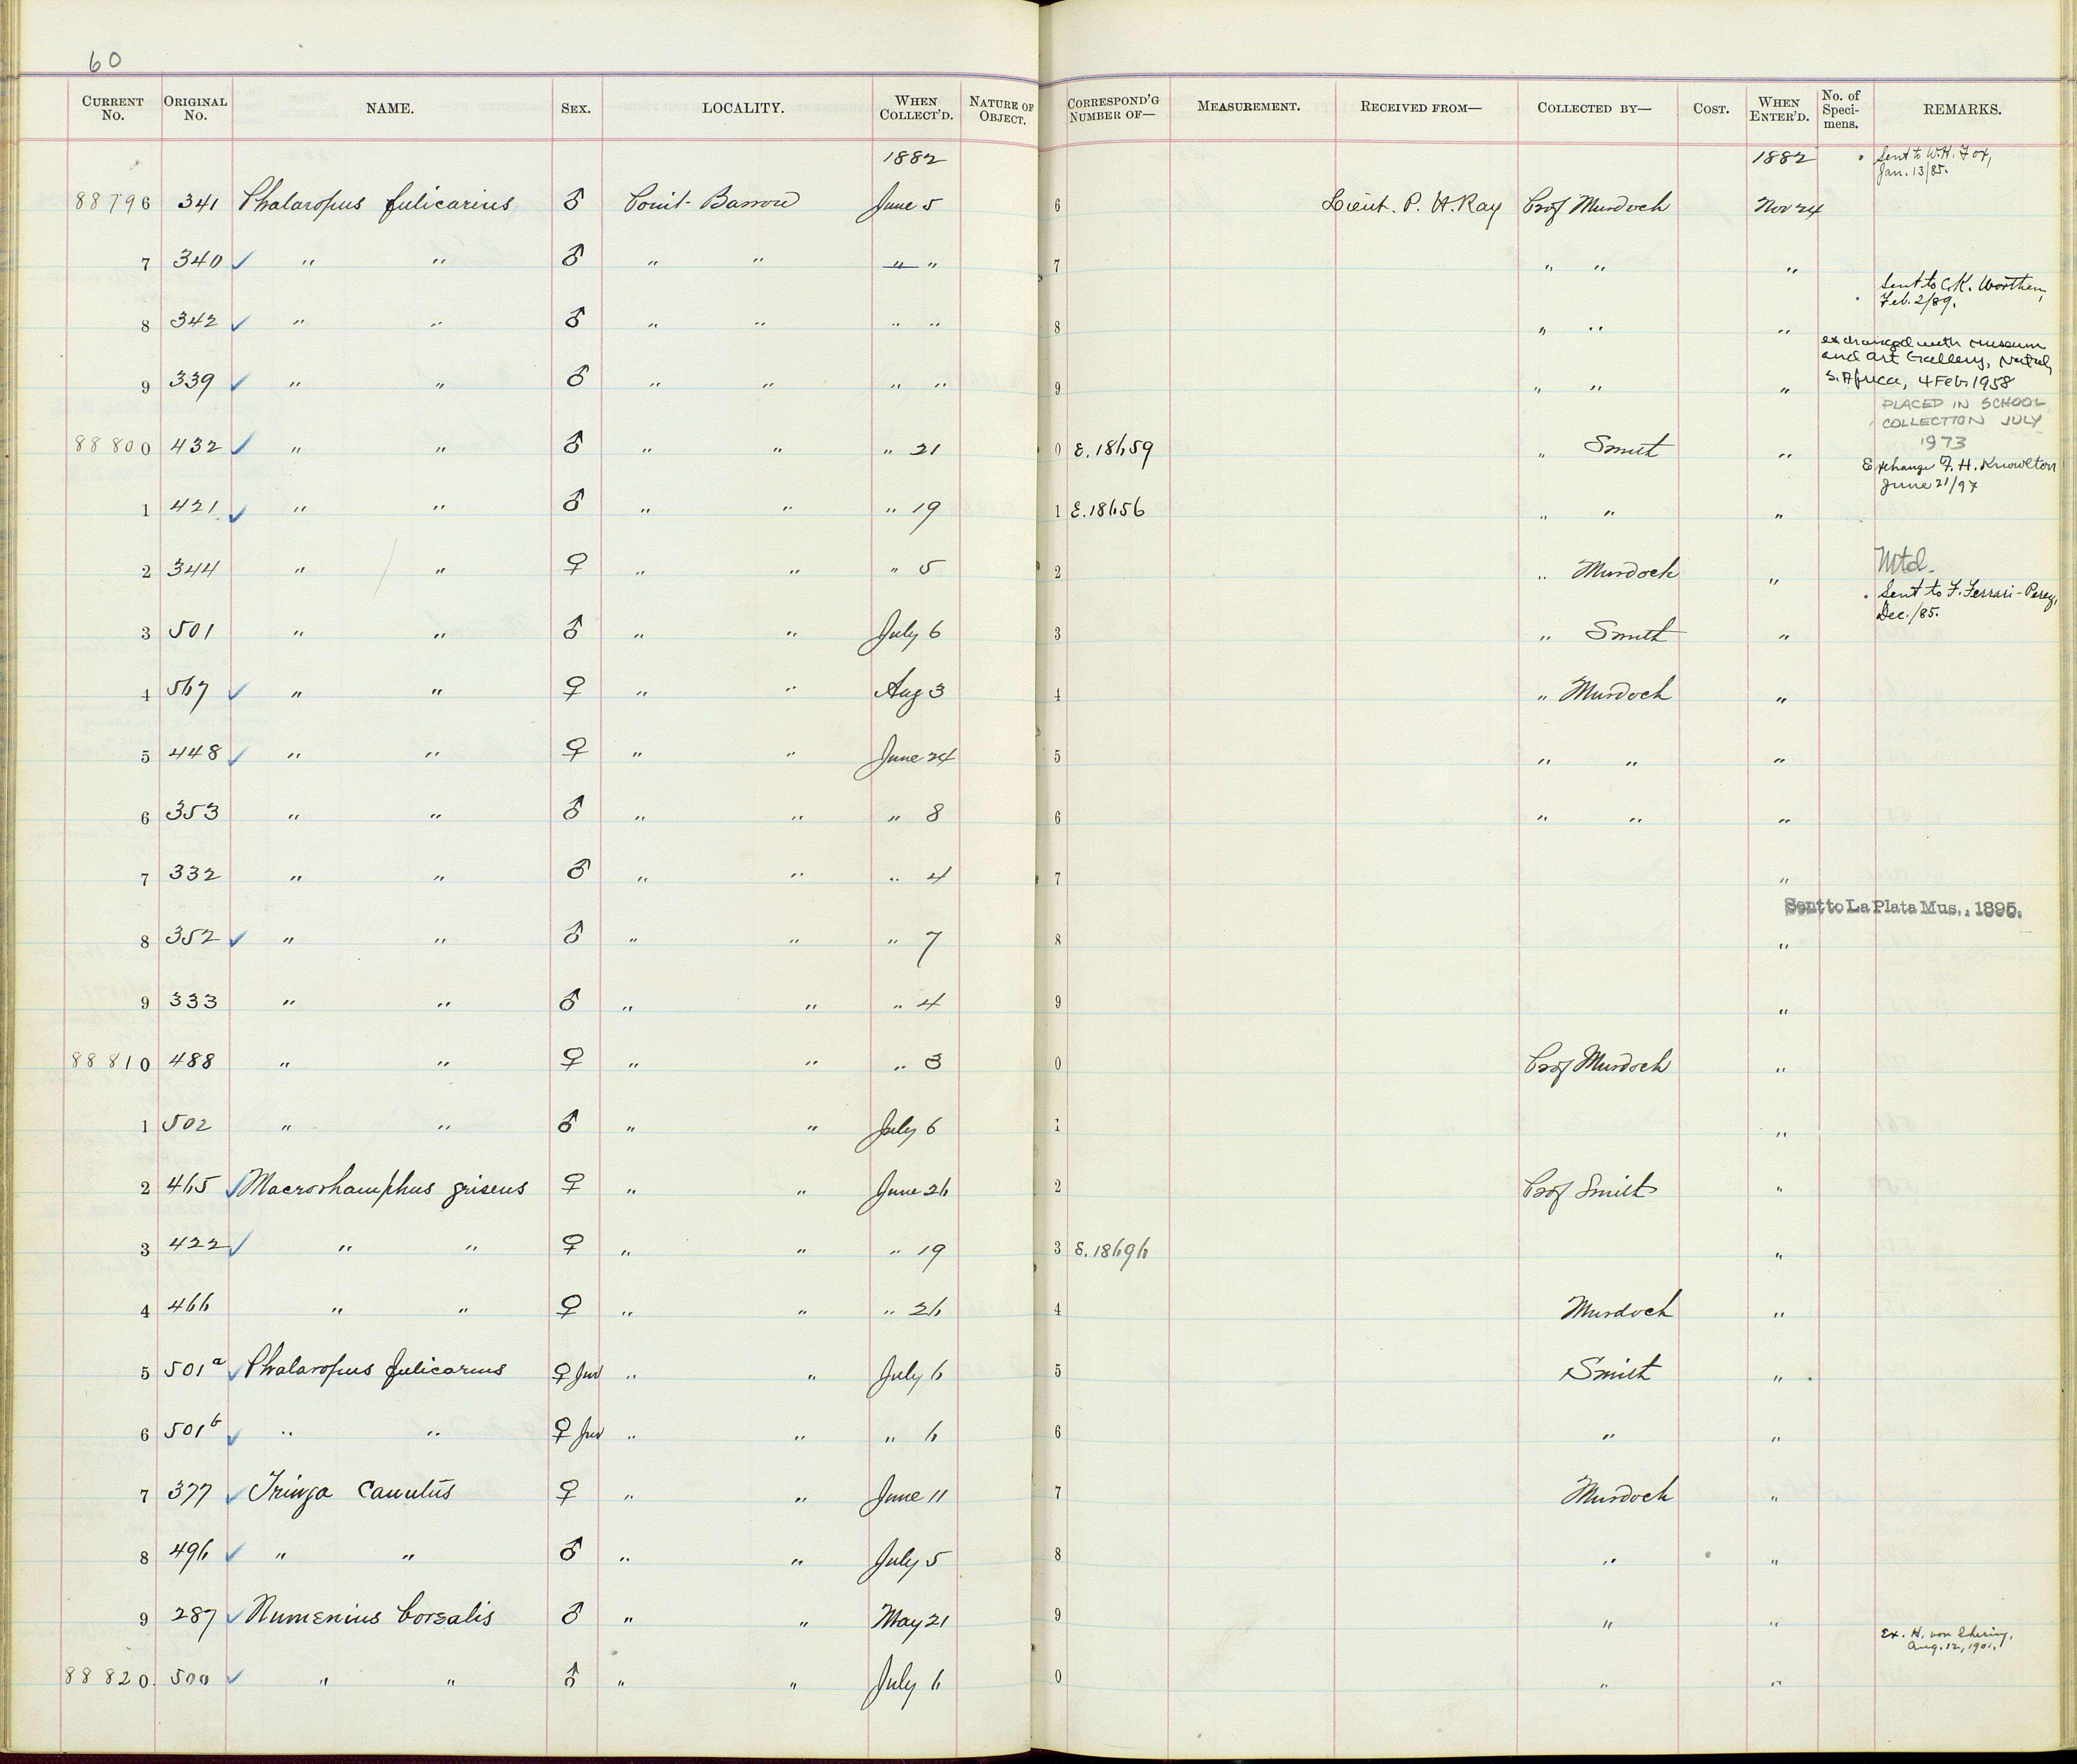 60
CURRENT No. ORIGINAL No. NAME. SEX. LOCALITY. WHEN COLLECT'D. NATURE OF OBJECT. CORRESPOND'G NUMBER OF— MEASUREMENT. RECEIVED FROM— COLLECTED BY— COST. WHEN ENTER'D. No. of Specimens. REMARKS.
1882 1882 Sent to W.H. Fox,
Jan. 13/85.
88796 341 Phalaropus fulicarius ♂ Point Barrow June 5 6 Lieut. P. H. Ray Prof Murdoch Nov 24
7 340 ✓ " " ♂ " " " " 7 " " "
Sent to C.K. Worthen,
Feb. 2/89.
8 342 ✓ " " ♂ " " " " 8 " " "
exchanged with museum
and Art Gallery, Natal,
S. Africa, 4 Feb. 1958
9 339 ✓ " " ♂ " " " " 9 " " "
PLACED IN SCHOOL
COLLECTION JULY
1973
88800 432 ✓ " " ♂ " " " 21 0 E. 18659 " Smith "
Exchange F. H. Knowlton
June 21/97
1 421 ✓ " " ♂ " " " 19 1 E. 18656 " " "
2 344 " " ♀ " " " 5 2 " Murdoch " Mtd.
Sent to F. Ferrari-Perez,
Dec. /85.
3 501 " " ♂ " " July 6 3 " Smith "
4 567 ✓ " " ♀ " " Aug 3 4 " Murdoch "
5 448 ✓ " " ♀ " " June 24 5 " " "
6 353 " " ♂ " " " 8 6 " " "
7 332 " " ♂ " " " 4 7 "
Sent to La Plata Mus., 1895.
8 352 ✓ " " ♂ " " " 7 8 "
9 333 " " ♂ " " " 4 9 "
88810 488 " " ♀ " " " 3 0 Prof Murdoch "
1 502 " " ♂ " " July 6 1 "
2 465 ✓ Macrorhamphus griseus ♀ " " June 26 2 Prof Smith "
3 422 ✓ " " ♀ " " " 19 3 E. 18696 "
4 466 " " ♀ " " " 26 4 Murdoch "
5 501a ✓ Phalaropus fulicarius ♀ Juv " " July 6 5 Smith "
6 501b ✓ " " ♀ Juv " " " 6 6 " "
7 377 ✓ Tringa Canutus ♀ " " June 11 7 Murdoch "
8 496 ✓ " " ♂ " " July 5 8 " "
9 287 ✓ Numenius borealis ♂ " " May 21 9 " "
Ex. H. von Ihering,
Aug. 12, 1901.
88820. 500 ✓ " " ♂ " " July 6 0 " "